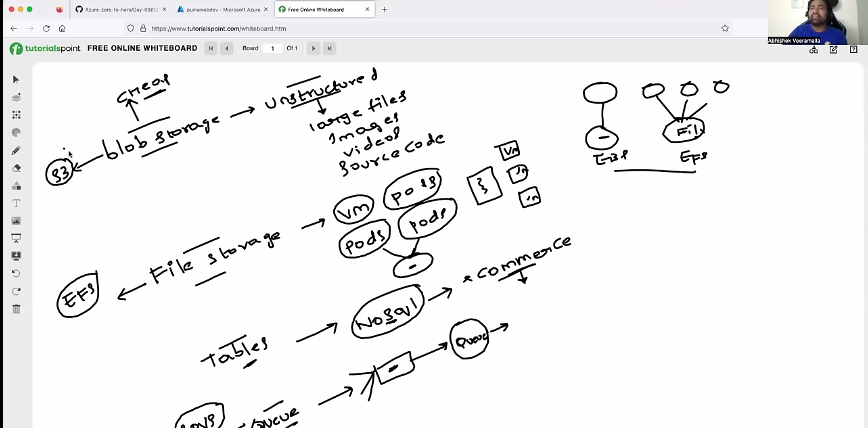 Azure-zero-to-hero/Day-09
punwebdev - Microsoft Azure
Free Online Whiteboard
https://www.tutorialspoint.com/whiteboard.htm
Abhishek Veeramalla
tutorialspoint FREE ONLINE WHITEBOARD Board 1 Of 1
cheap
Blob storage
S3
unstructured
large files
Images
videos
source code
EBS
File
EFS
File storage
EFS
VM
pods
pods
pods
VM
VM
VM
Tables
NoSql
e commerce
Queue
Queue